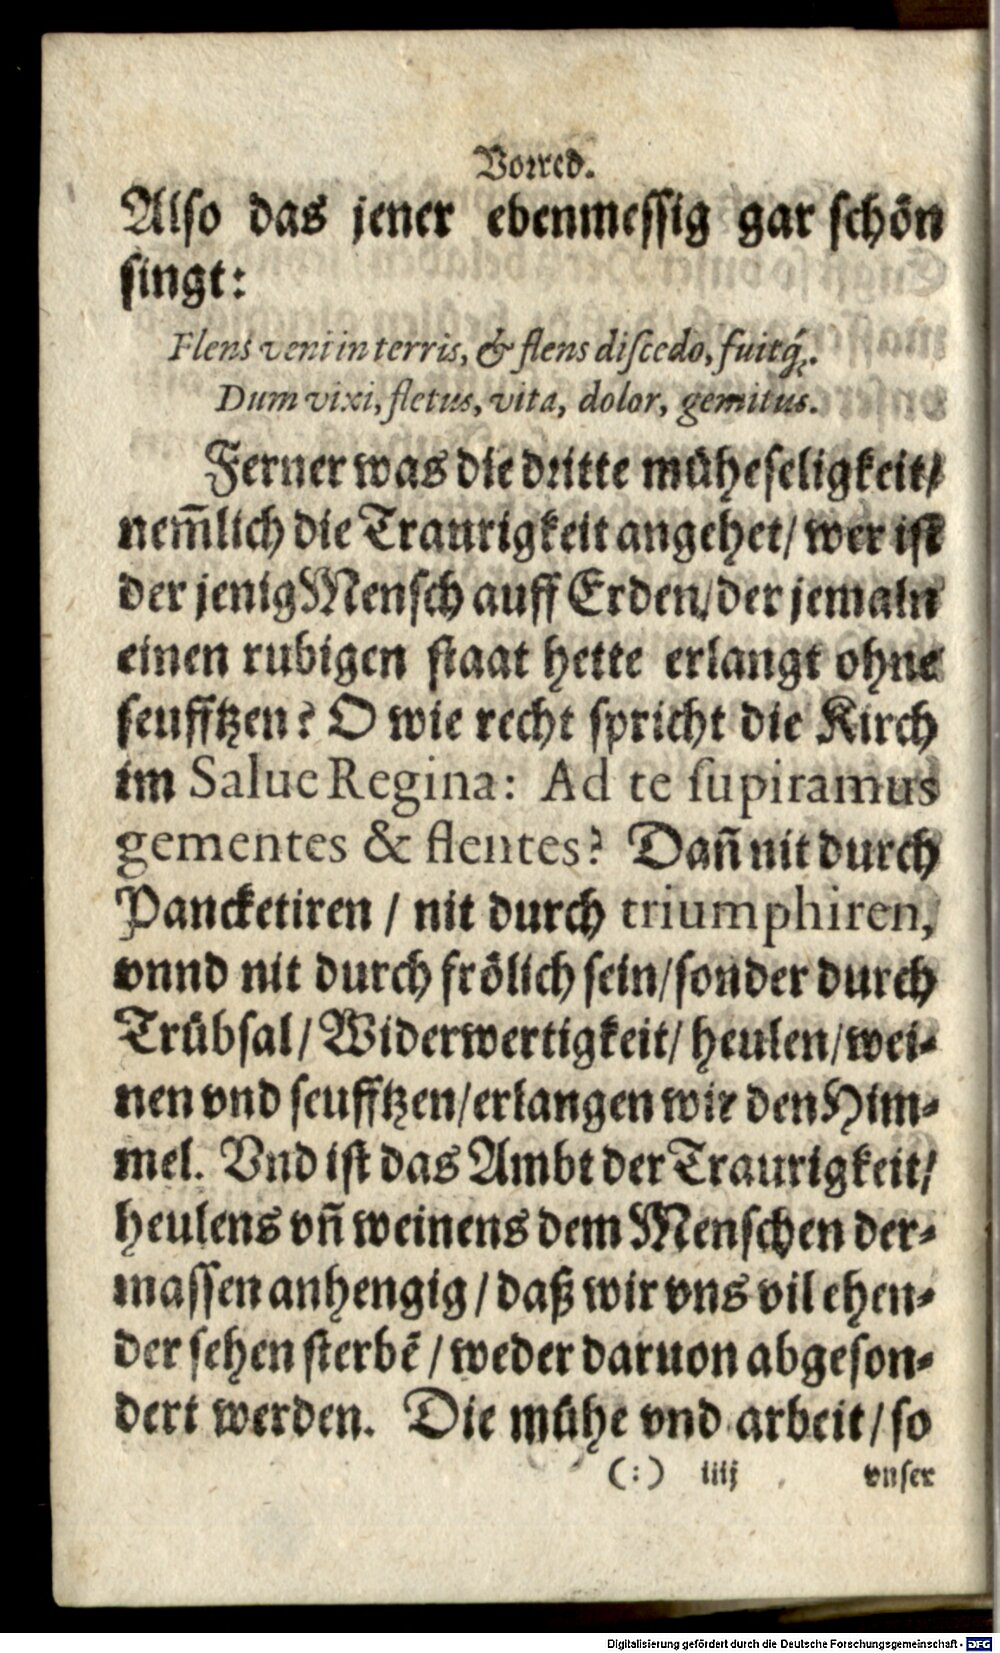 Vorred.
Also das jener ebenmessig gar schön
singt:
Flens veni in terris, & flens discedo, fuitq́;.
Dum vixi, fletus, vita, dolor, gemitus.
Ferner was die dritte müheseligkeit/
nem̃lich die Traurigkeit angehet/ wer ist
der jenig Mensch auff Erden/ der jemaln
einen rubigen staat hette erlangt ohne
seufftzen? O wie recht spricht die Kirch
im Salue Regina: Ad te supiramus
gementes & flentes? Dañ nit durch
Pancketiren / nit durch triumphiren,
vnnd nit durch frölich sein/ sonder durch
Trübsal/ Widerwertigkeit/ heulen/ wei-
nen vnd seufftzen/ erlangen wir den Him-
mel. Vnd ist das Ambt der Traurigkeit/
heulens vñ weinens dem Menschen der-
massen anhengig / daß wir vns vil ehen-
der sehen sterbẽ / weder daruon abgeson-
dert werden. Die mühe vnd arbeit / so
(:) iiij vnser
Digitalisierung gefördert durch die Deutsche Forschungsgemeinschaft - DFG